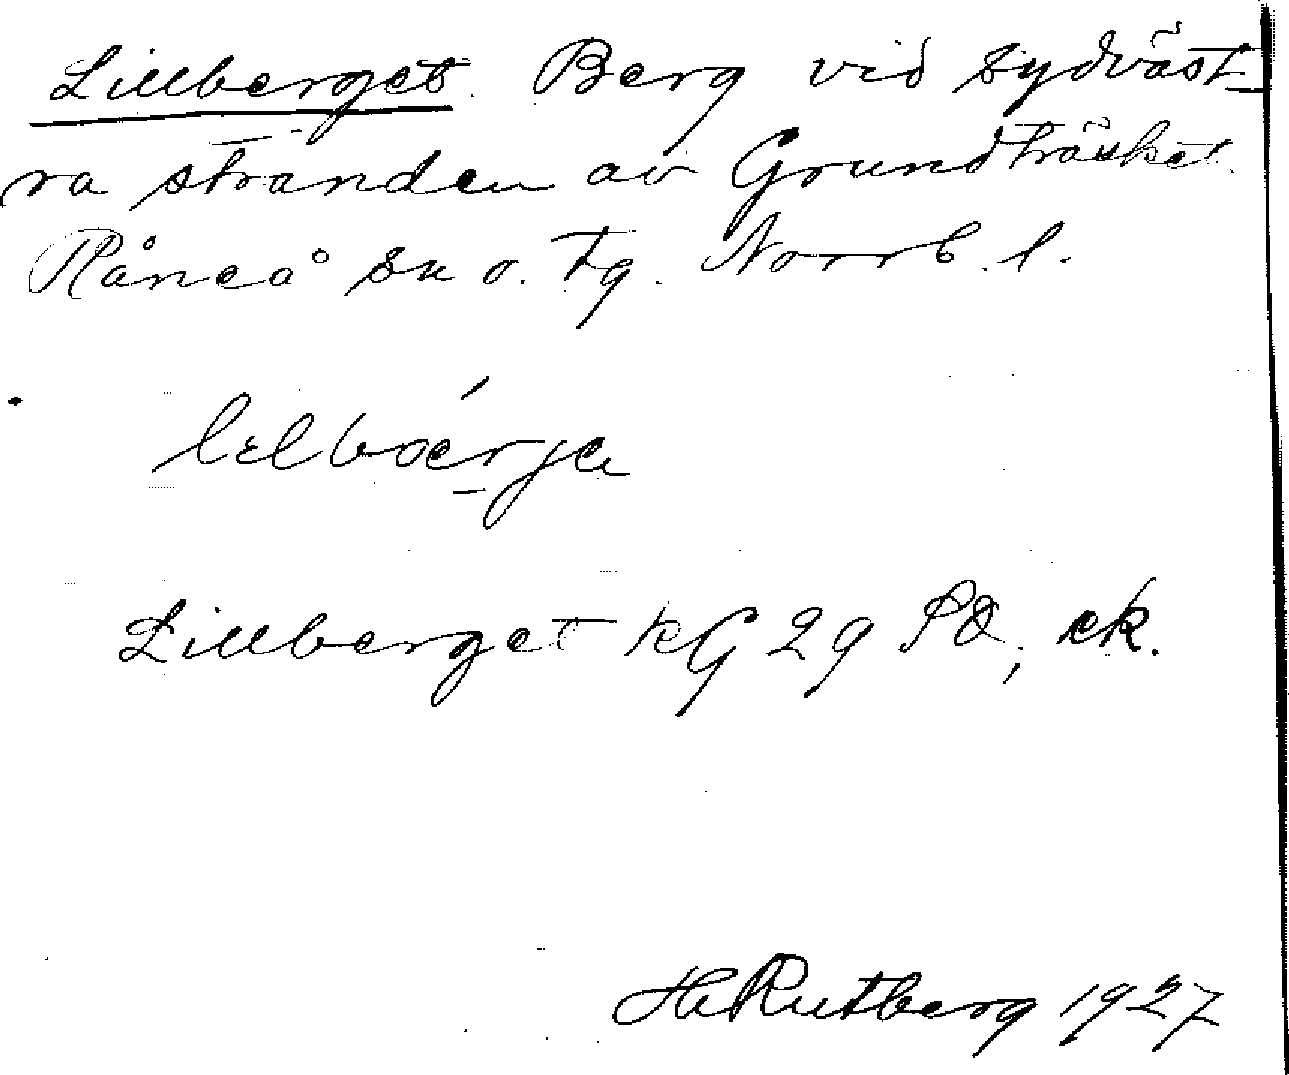 Lillberget. Berg vid sydväst-
ra stranden av Grundträsket.
Råneå sn o. tg. Norrb. l.
Lillberget kG 29 SO, ek.
H Rutberg 1927